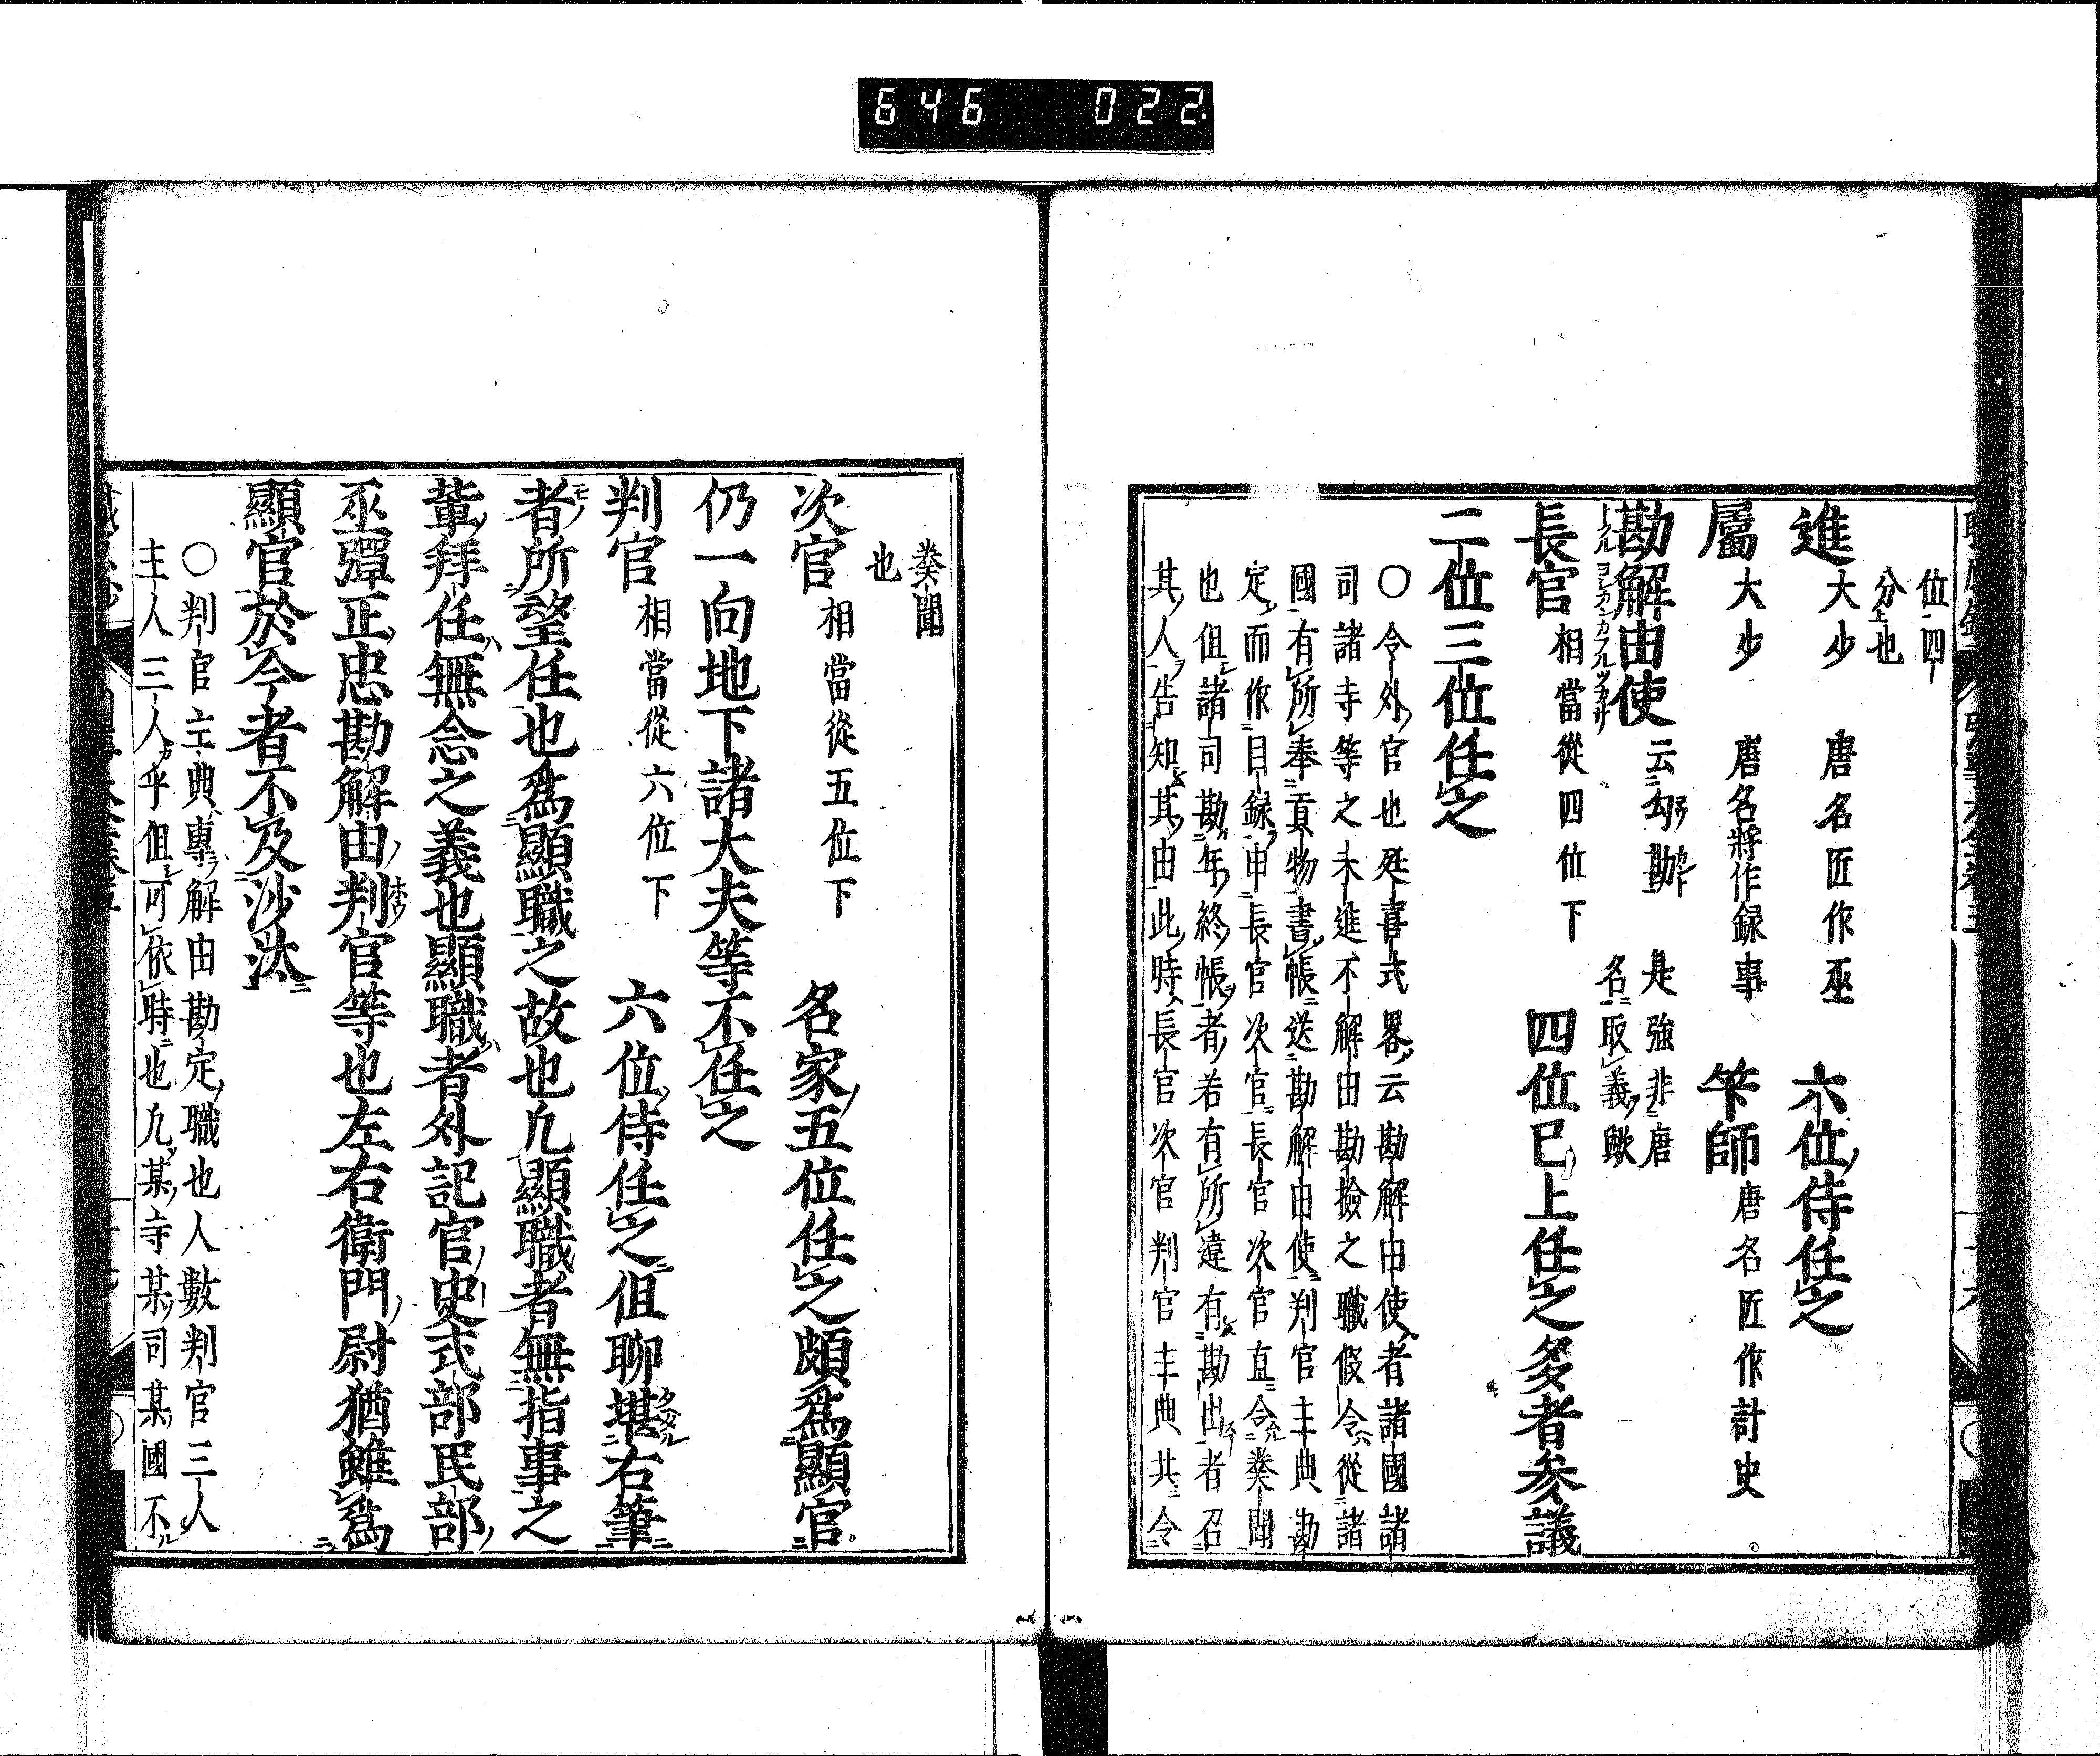 646 022
位四
分上也
進 大少 唐名匠作丞 六位侍任之
属 大少 唐名將作録事 竿師 唐名匠作計史
勘解由使 云勾勘 是強非唐
名取義歟
トクルヨシカンカフルツカサ
長官 相當從四位下 四位已上任之多者参議
二位三位任之
○令外官也延喜式畧云勘解由使者諸國諸
司諸寺等之未進不解由勘撿之職假令從諸
國有所奉貢物書帳送勘解由使判官主典勘
定而作目録申長官次官長官次官直令奏聞
也但諸司勘年終帳者若有所違有勘出者召
其人告知其由此時長官次官判官主典共令
奏聞
也
次官 相當從五位下 名家五位任之頗為顯官
仍一向地下諸大夫等不任之
判官 相當從六位下 六位侍任之但聊堪右筆
者所望任也為顯職之故也凢顯職者無指事之
輩拜任無念之義也顯職者外記官史式部民部
丞彈正忠勘解由判官等也左右衛門尉猶雖為
顯官於今者不及沙汰
○判官主典專解由勘定職也人數判官三人
主人三人乎但可依時也凢某寺某司某國不